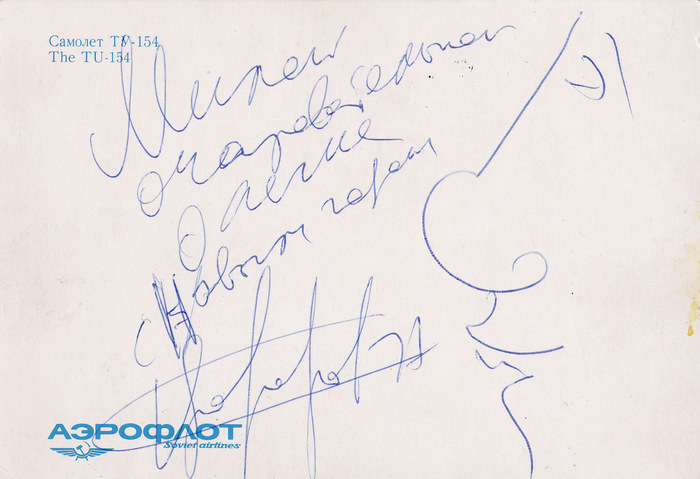 Самолет ТУ-154
The TU-154
Милой
очаровательной
Олечке
с Новым годом
АЭРОФЛОТ
Soviet airlines